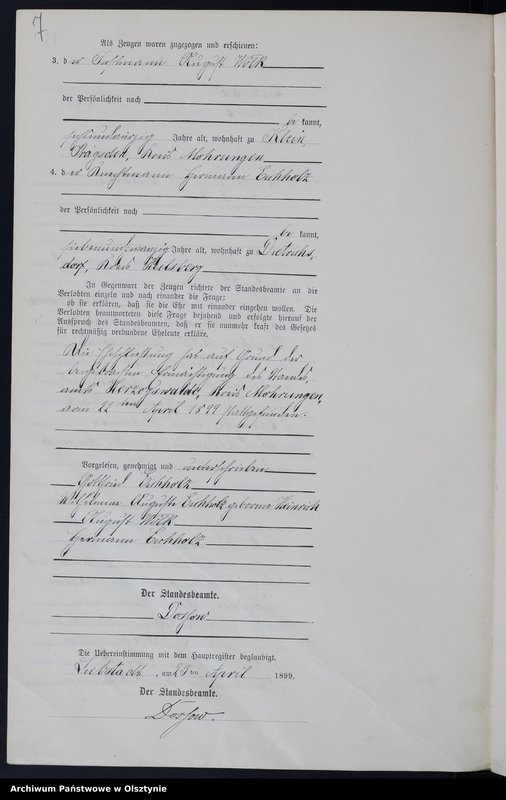 7
Als Zeugen waren zugezogen und erschienen:
3. der Instmann August Wölk
der Persönlichkeit nach
be kannt,
Jahre alt, wohnhaft zu Klein
Prägsden, Kreis Mohrungen
4. der Knechtmann Hermann Eichholz
der Persönlichkeit nach
be kannt,
siebenundzwanzig Jahre alt, wohnhaft zu Dietrichs-
dorf, Kreis Heilsberg
In Gegenwart der Zeugen richtete der Standesbeamte an die
Verlobten einzeln und nach einander die Frage:
ob sie erklären, daß sie die Ehe mit einander eingehen wollen. Die
Verlobten beantworteten diese Frage bejahend und erfolgte hierauf der
Ausspruch des Standesbeamten, daß er sie nunmehr kraft des Gesetzes
für rechtmäßig verbundene Eheleute erkläre.
Die Eheschließung hat auf Grund der
Ermächtigung des Standes-
amts Herzogswalde, Kreis Mohrungen,
vom 22ten April 1899 stattgefunden.
Vorgelesen, genehmigt und unterschrieben
Gottfried Eichholz
Wilhelmine Auguste Eichholz geborene Heinrich
August Wölk
Hermann Eichholz
Der Standesbeamte.
Dossow
Die Uebereinstimmung mit dem Hauptregister beglaubigt.
Liebstadt, am 23ten April 1899.
Der Standesbeamte.
Dossow.
Archiwum Państwowe w Olsztynie